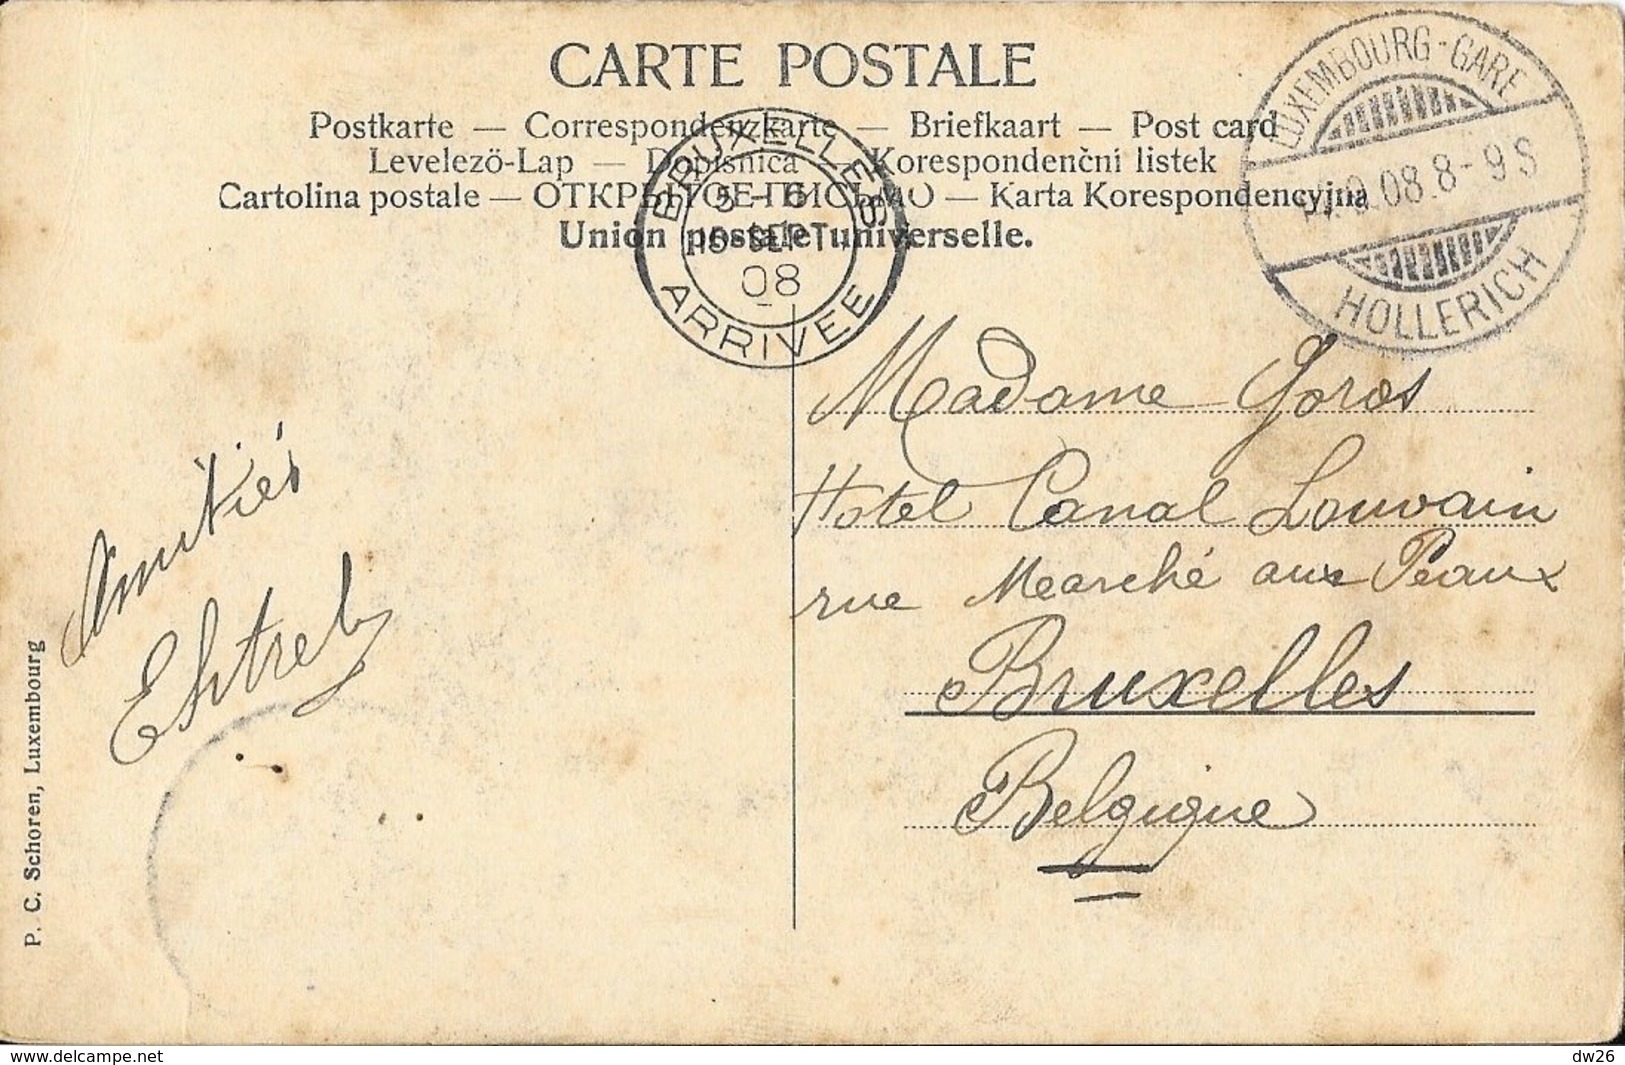 CARTE POSTALE
Postkarte — Correspondenzkarte — Briefkaart — Post card
Levelezö-Lap — Dopisnica — Korespondenčni listek
Cartolina postale — ОТКРЫТОЕ ПИСЬМО — Karta Korespondencyjna
Union postale universelle.
BRUXELLES
5 - 6
15 SEPT
08
ARRIVEE
LUXEMBOURG-GARE
.9.08.8-9S
HOLLERICH
Madame Goros
Hotel Canal Louvain
rue Marché aux Peaux
Bruxelles
Belgique
Amitiés
P. C. Schoren, Luxembourg
www.delcampe.net
dw26